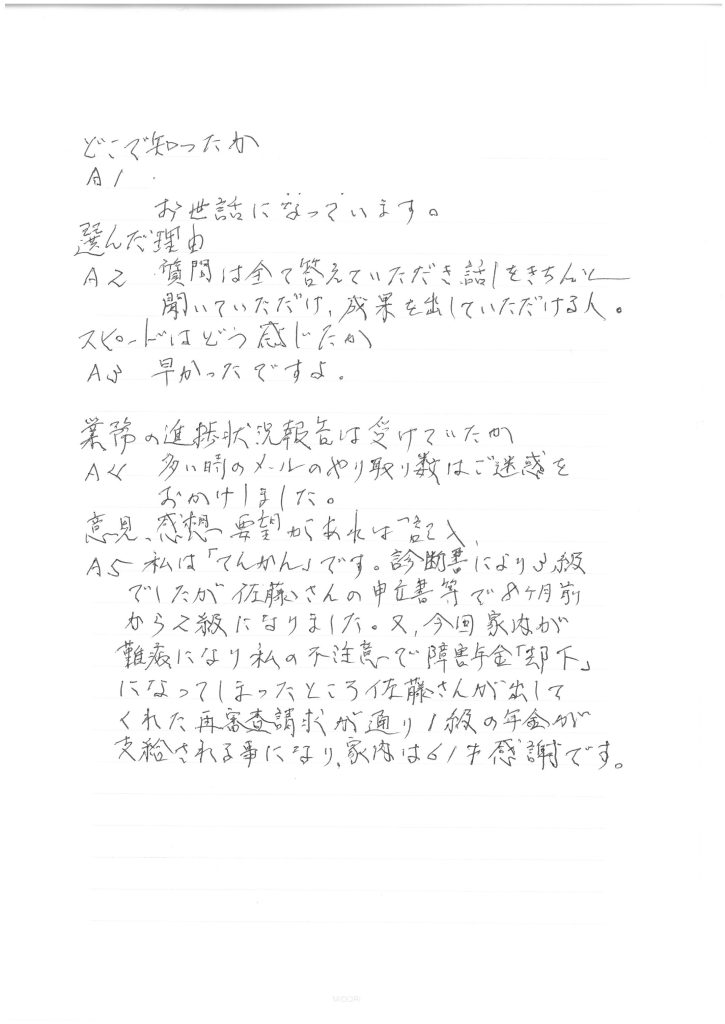 どこで知ったか
A1.
お世話になっています。
選んだ理由
A2 質問は全て答えていただき話しをきちんと
聞いていただけ、成果を出していただける人。
スピードはどう感じたか
A3 早かったですよ。
業務の進捗状況報告は受けていたか
A4 多い時のメールのやり取り数はご迷惑を
おかけしました。
意見、感想、要望があれば記入、
A5 私は「てんかん」です。診断書により3級
でしたが佐藤さんの申立書等で8ヶ月前
から2級になりました。又、今回家内が
難病になり私の不注意で障害年金「却下」
になってしまったところ佐藤さんが出して
くれた再審査請求が通り1級の年金が
支給される事になり、家内は61才感謝です。
MIDORI